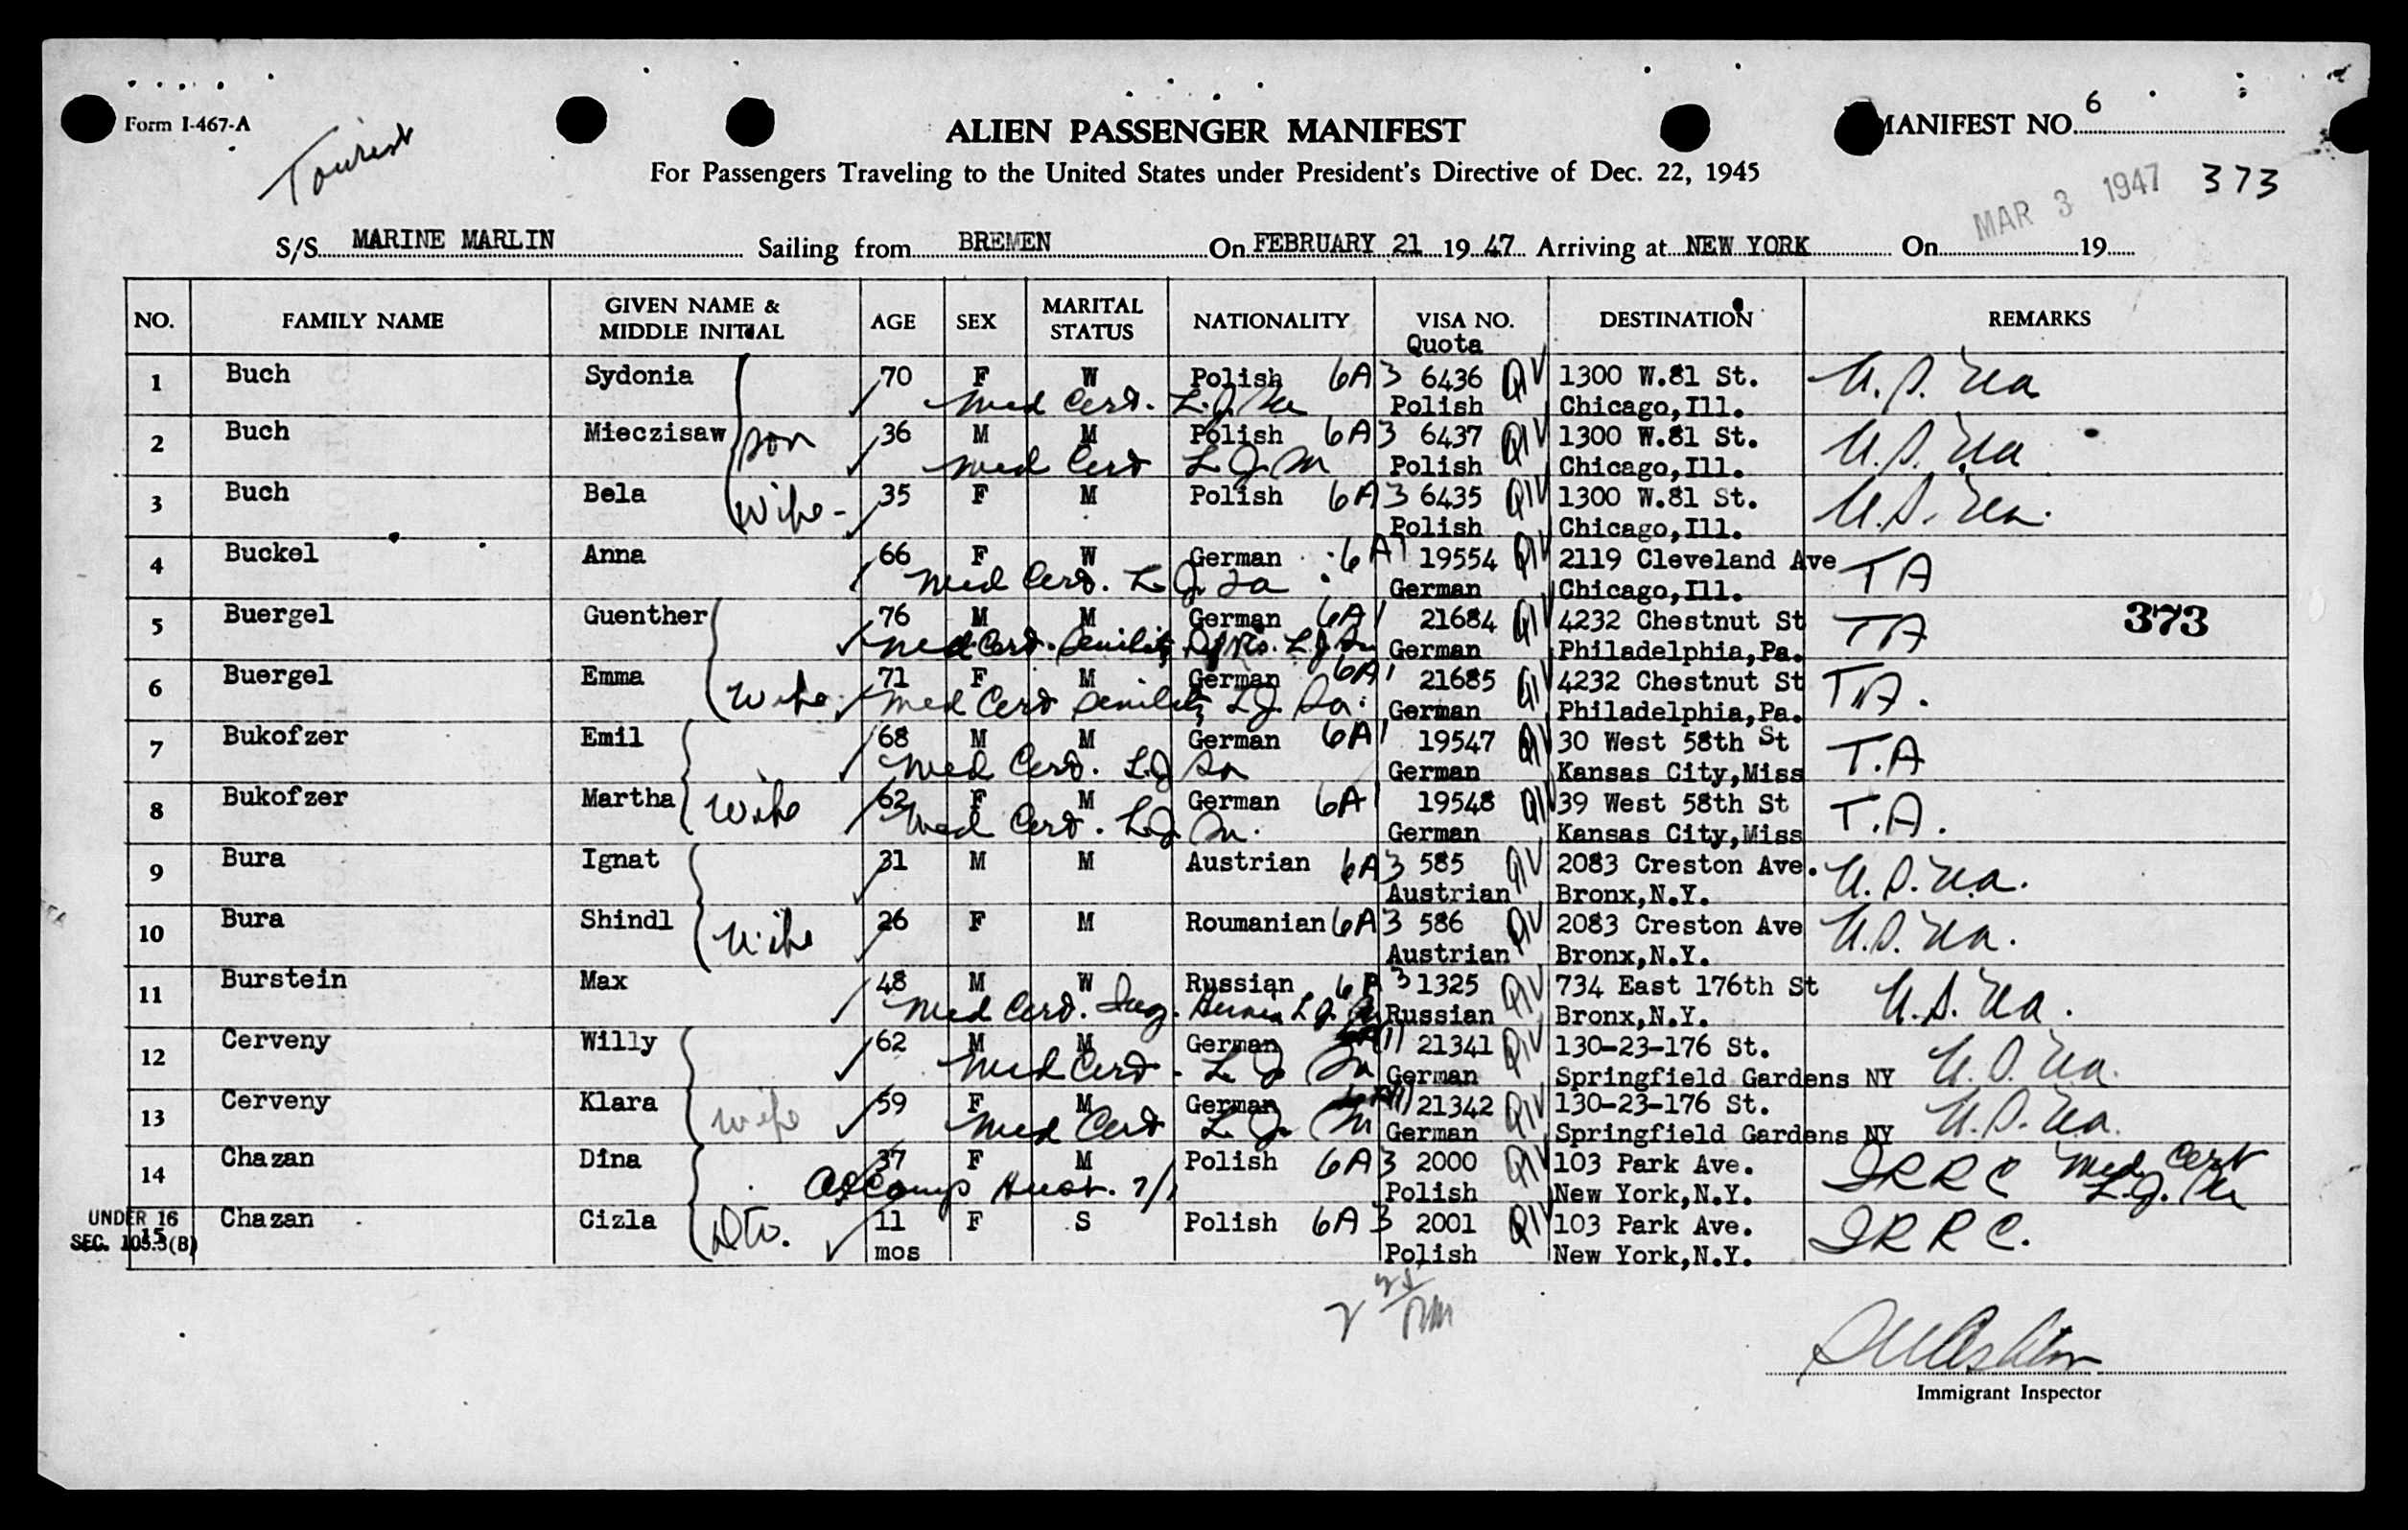 Form I-467-A
Tourist
ALIEN PASSENGER MANIFEST
MANIFEST NO. 6
For Passengers Traveling to the United States under President's Directive of Dec. 22, 1945
MAR 3 1947 373
S/S MARINE MARLIN Sailing from BREMEN On FEBRUARY 21 19 47 Arriving at NEW YORK On 19
NO. FAMILY NAME GIVEN NAME & MIDDLE INITIAL AGE SEX MARITAL STATUS NATIONALITY VISA NO. Quota DESTINATION REMARKS
1 Buch Sydonia 70 F W Polish 6A3 6436 QIV 1300 W.81 St.
Med Cert. Polish Chicago,Ill.
2 Buch Mieczisaw son 36 M M Polish 6A3 6437 QIV 1300 W.81 St.
Med Cert Polish Chicago,Ill.
3 Buch Bela Wife- 35 F M Polish 6A3 6435 QIV 1300 W.81 St.
Polish Chicago,Ill.
4 Buckel Anna 66 F W German 6A1 19554 QIV 2119 Cleveland Ave TA
Med Cert. German Chicago,Ill.
5 Buergel Guenther 76 M M German 6A1 21684 QIV 4232 Chestnut St TA 373
Med Cert. Senility German Philadelphia,Pa.
6 Buergel Emma Wife 71 F M German 6A1 21685 QIV 4232 Chestnut St T.A.
Med Cert Senility German Philadelphia,Pa.
7 Bukofzer Emil 68 M M German 6A1 19547 QIV 30 West 58th St T.A
Med Cert. German Kansas City,Miss
8 Bukofzer Martha Wife 62 F M German 6A1 19548 QIV 39 West 58th St T.A.
Med Cert. German Kansas City,Miss
9 Bura Ignat 31 M M Austrian 6A3 585 QIV 2083 Creston Ave.
Austrian Bronx,N.Y.
10 Bura Shindl Wife 26 F M Roumanian 6A3 586 QIV 2083 Creston Ave
Austrian Bronx,N.Y.
11 Burstein Max 48 M W Russian 6A3 1325 QIV 734 East 176th St
Med Cert. Ing. Hernia Russian Bronx,N.Y.
12 Cerveny Willy 62 M M German 21341 QIV 130-23-176 St.
Med Cert. German Springfield Gardens NY
13 Cerveny Klara wife 59 F M German 21342 QIV 130-23-176 St.
Med Cert German Springfield Gardens NY
14 Chazan Dina 37 F M Polish 6A3 2000 QIV 103 Park Ave. IRRC Med Cert
Polish New York,N.Y.
UNDER 16
SEC. 105.3(B)
15 Chazan Cizla Dtr. 11 mos F S Polish 6A3 2001 QIV 103 Park Ave. IRRC.
Polish New York,N.Y.
Immigrant Inspector